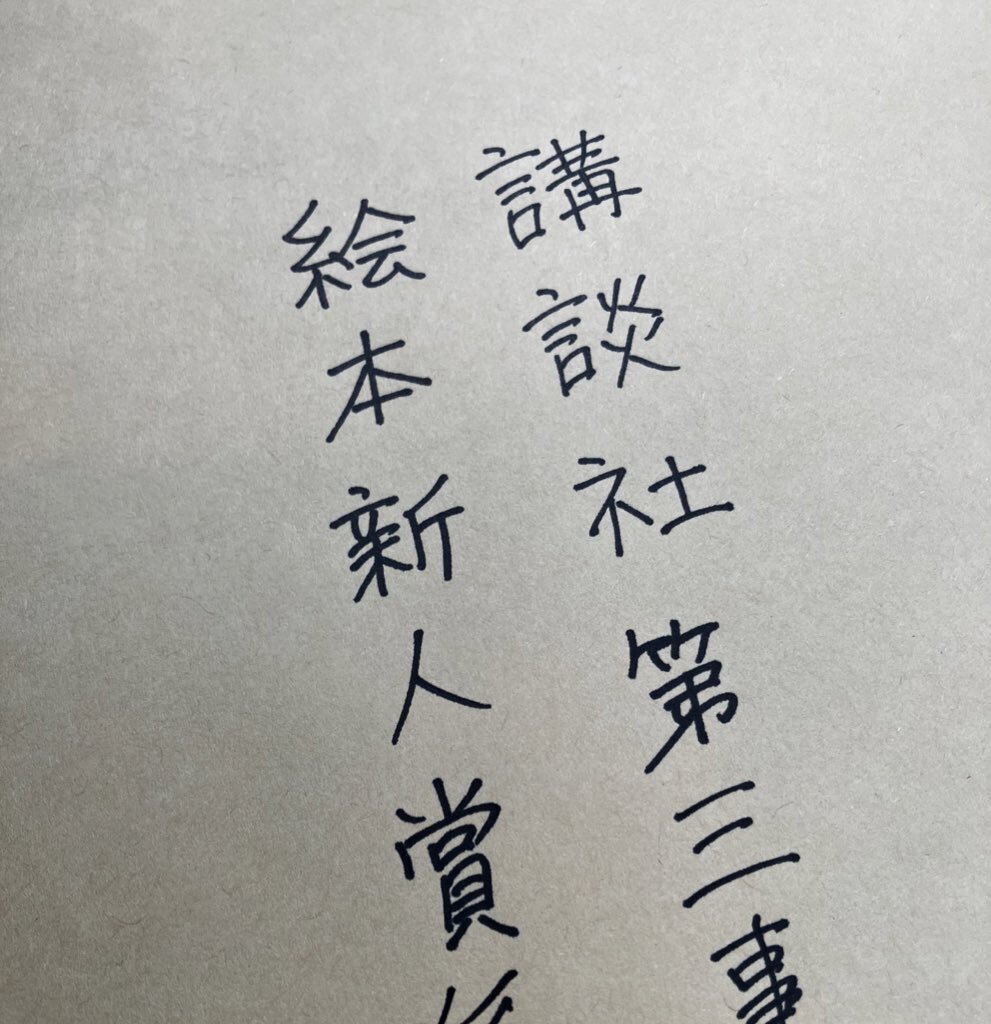 講談社第三事
絵本新人賞